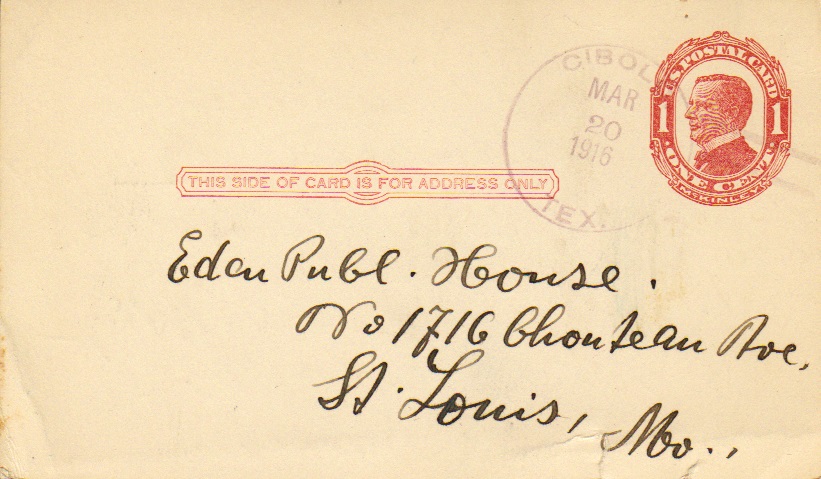 U.S. POSTAL CARD
1 1
ONE CENT
McKINLEY
CIBOLO
MAR
20
1916
TEX.
THIS SIDE OF CARD IS FOR ADDRESS ONLY
Eden Publ. House.
No 1716 Chouteau Ave,
St. Louis,
Mo.,